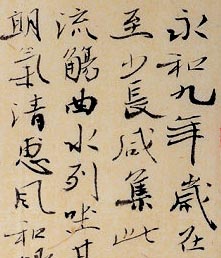 永和九年歲在
至少長咸集此
流觴曲水列坐其
朝氣清惠風和